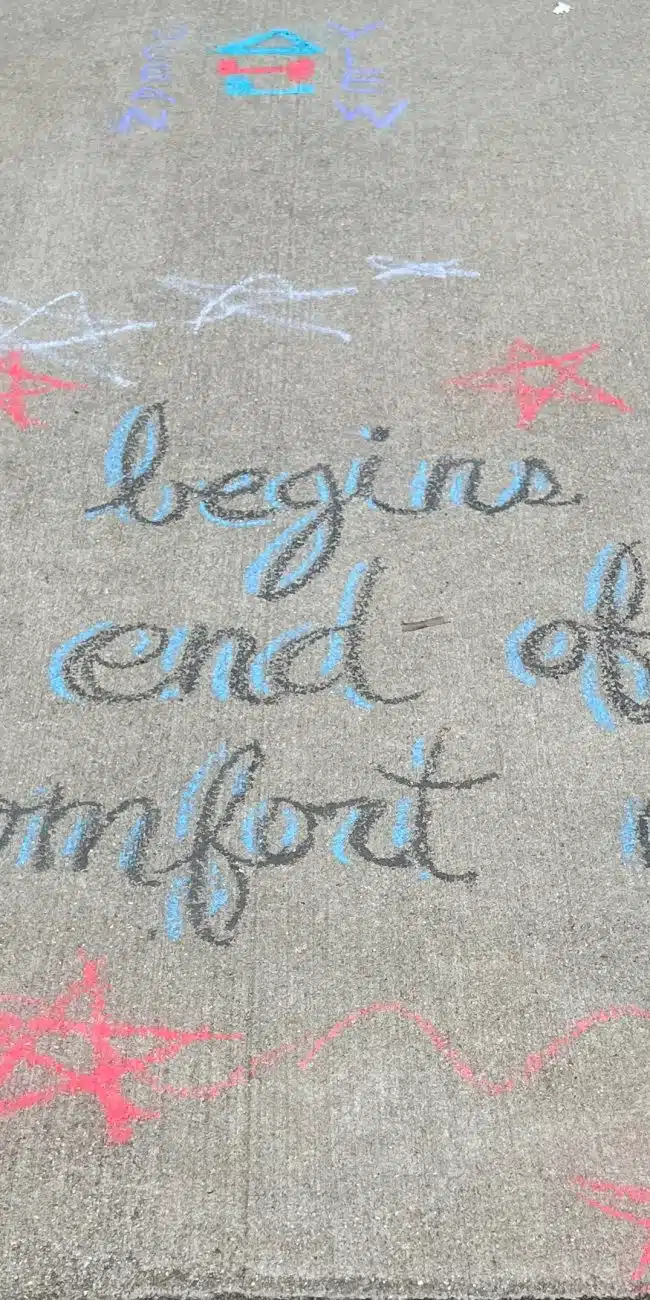 begins
end of
omfort